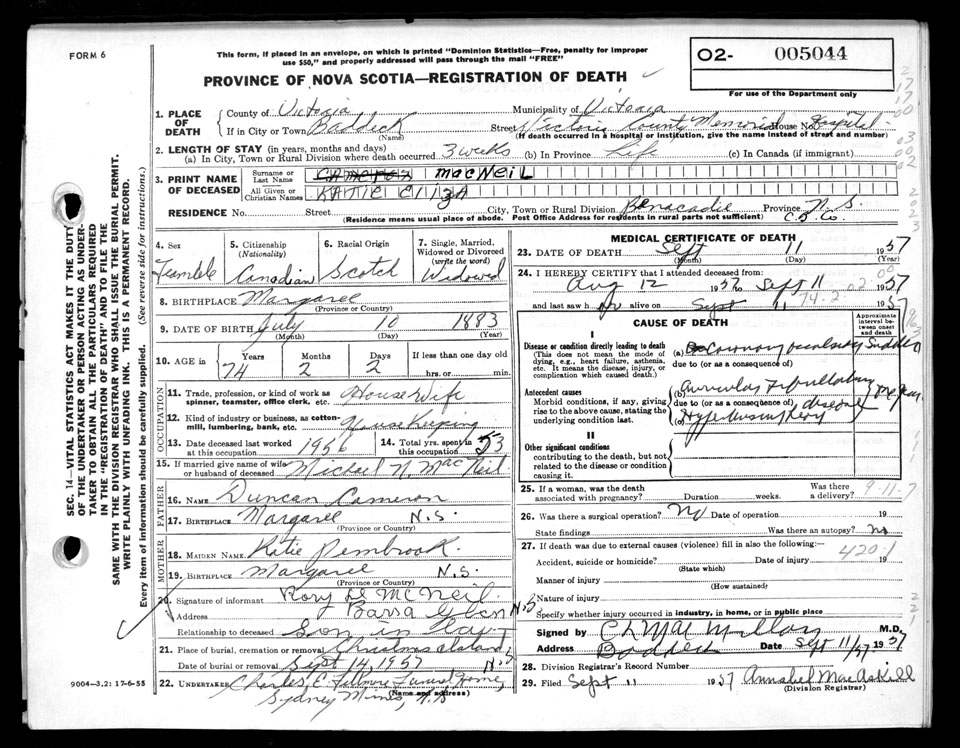 FORM 6
This form, if placed in an envelope, on which is printed "Dominion Statistics—Free, penalty for improper
use $50," and properly addressed will pass through the mail "FREE"
PROVINCE OF NOVA SCOTIA—REGISTRATION OF DEATH
02- 005044
For use of the Department only
SEC. 14—VITAL STATISTICS ACT MAKES IT THE DUTY
OF THE UNDERTAKER OR PERSON ACTING AS UNDER-
TAKER TO OBTAIN ALL THE PARTICULARS REQUIRED
IN THE "REGISTRATION OF DEATH" AND TO FILE THE
SAME WITH THE DIVISION REGISTRAR WHO SHALL ISSUE THE BURIAL PERMIT.
WRITE PLAINLY WITH UNFADING INK. THIS IS A PERMANENT RECORD.
Every item of information should be carefully supplied. (See reverse side for instructions.)
1. PLACE OF DEATH
County of Victoria Municipality of Victoria
If in City or Town Baddeck Street Victoria County Memorial House No. Hospital
(Name) (If death occurred in a hospital or institution, give the name instead of street and number)
2. LENGTH OF STAY (in years, months and days)
(a) In City, Town or Rural Division where death occurred 3 weeks (b) In Province Life (c) In Canada (if immigrant)
3. PRINT NAME OF DECEASED
Surname or Last Name Cameron MacNeil
All Given or Christian Names KATIE ElizA
RESIDENCE No. Street City, Town or Rural Division Benacadie Province N.S.
(Residence means usual place of abode. Post Office Address for residents in rural parts not sufficient) C.B. Co.
4. Sex Female
5. Citizenship (Nationality) Canadian
6. Racial Origin Scotch
7. Single, Married, Widowed or Divorced (write the word) Widowed
8. BIRTHPLACE Margaree
(Province or Country)
9. DATE OF BIRTH July 10 1883
(Month) (Day) (Year)
10. AGE in Years 74 Months 2 Days 2 If less than one day old hrs. or min.
OCCUPATION
11. Trade, profession, or kind of work as spinner, teamster, office clerk, etc. Housewife
12. Kind of industry or business, as cotton-mill, lumbering, bank, etc. Housekeeping
13. Date deceased last worked at this occupation 1956
14. Total yrs. spent in this occupation 53
15. If married give name of wife or husband of deceased Michael N. MacNeil
FATHER
16. NAME Duncan Cameron
17. BIRTHPLACE Margaree N.S.
(Province or Country)
MOTHER
18. MAIDEN NAME Katie Pembrook
19. BIRTHPLACE Margaree N.S.
(Province or Country)
20. Signature of informant Rory McNeil
Address Barra Glen N.S
Relationship to deceased Son in Law
21. Place of burial, cremation or removal Christmas Island
Date of burial or removal Sept 14, 1957 N.S
22. UNDERTAKER Charles E. Fillmore Funeral Home,
(Name and address)
Sydney Mines, N.S
9004—3.2: 17-6-55
MEDICAL CERTIFICATE OF DEATH
23. DATE OF DEATH Sept 11 1957
(Month) (Day)
24. I HEREBY CERTIFY that I attended deceased from:
Aug 12 1957 to Sept 11 1957
and last saw h alive on Sept 11 1957
74-2 02
CAUSE OF DEATH
Approximate interval between onset and death
I
Disease or condition directly leading to death
(This does not mean the mode of dying, e.g., heart failure, asthenia, etc. It means the disease, injury, or complication which caused death.)
(a) Coronary occlusion Sudden
due to (or as a consequence of)
Antecedent causes
Morbid conditions, if any, giving rise to the above cause, stating the underlying condition last.
(b) Auricular Fibrillation
due to (or as a consequence of) disease
(c)
II
Other significant conditions
contributing to the death, but not related to the disease or condition causing it.
25. If a woman, was the death associated with pregnancy? Duration weeks. Was there a delivery? 9-11-7
26. Was there a surgical operation? No Date of operation 19
State findings Was there an autopsy? no
27. If death was due to external causes (violence) fill in also the following:—
420.1
Accident, suicide or homicide? Date of injury 19
(State which)
Manner of injury
(How sustained)
Nature of injury
Specify whether injury occurred in industry, in home, or in public place
Signed by C L MacMillan M.D.
Address Baddeck Date Sept 11/57 1957
28. Division Registrar's Record Number
29. Filed Sept 11 1957 Annabel MacAskill
(Division Registrar)